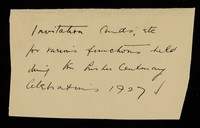 Invitation Cards, etc
for various functions held
during the Lister Centenary
Celebrations 1927